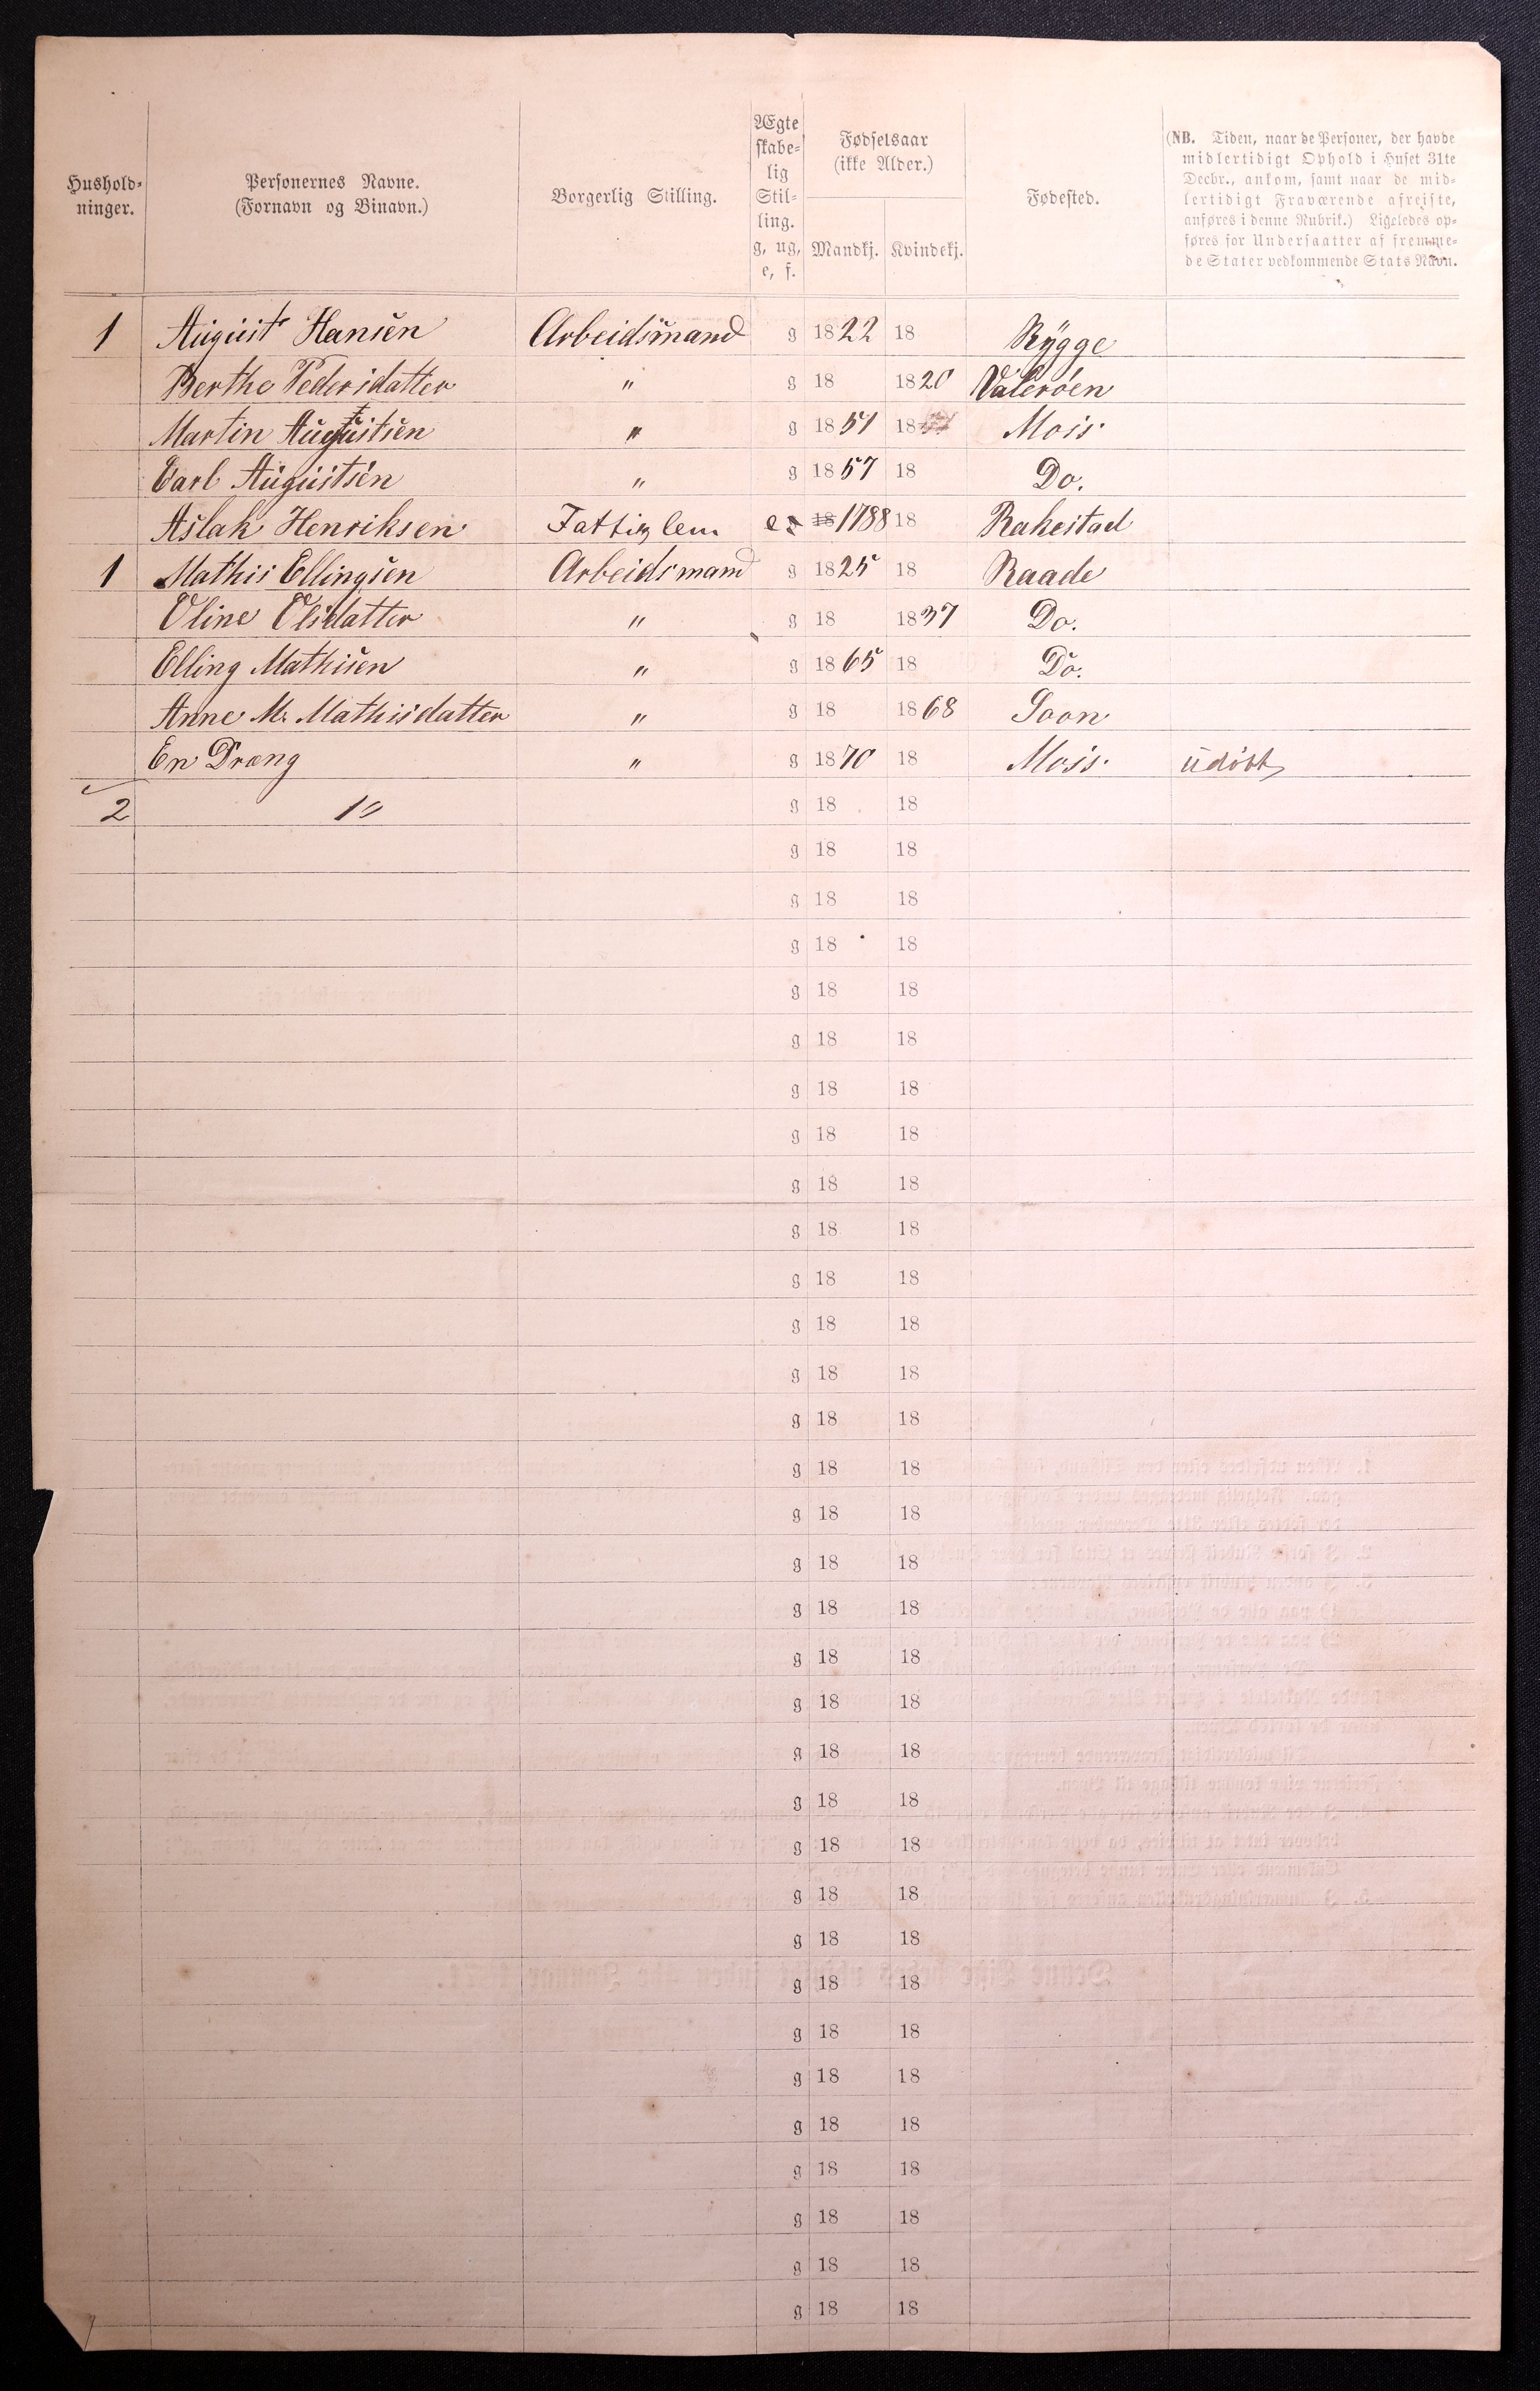 Hushold-
ninger.
Personernes Navne.
(Fornavn og Binavn.)
Borgerlig Stilling.
Ægte
skabe-
lig
Stil-
ling.
g, ug,
e, f.
Fødselsaar
(ikke Alder.)
Mandkj. Kvindekj.
Fødested.
(NB. Tiden, naar de Personer, der havde
midlertidigt Ophold i Huset 31te
Decbr., ankom, samt naar de mid-
lertidigt Fraværende afreiste,
anføres i denne Rubrik.) Ligeledes op-
føres for Undersaatter af fremme-
de Stater vedkommende Stats Navn.
1 August Hansen Arbeidsmand g 1822 18 Rygge
Berthe Pedersdatter " g 18 1820 Valerøen
Martin Augustsen " g 1851 18 Moss
Carl Augustsen " g 1857 18 Do.
Aslak Henriksen Fattiglem e 18 1788 18 Rakestad
1 Mathis Ellingsen Arbeidsmand g 1825 18 Raade
Oline Olsdatter " g 18 1837 Do.
Elling Mathisen " g 1865 18 Do.
Anne M. Mathisdatter " g 18 1868 Soon
En Dræng " g 1870 18 Moss udøbt
2 10 g 18 18
g 18 18
g 18 18
g 18 18
g 18 18
g 18 18
g 18 18
g 18 18
g 18 18
g 18 18
g 18 18
g 18 18
g 18 18
g 18 18
g 18 18
g 18 18
g 18 18
g 18 18
g 18 18
g 18 18
g 18 18
g 18 18
g 18 18
g 18 18
g 18 18
g 18 18
g 18 18
g 18 18
g 18 18
g 18 18
g 18 18
g 18 18
g 18 18